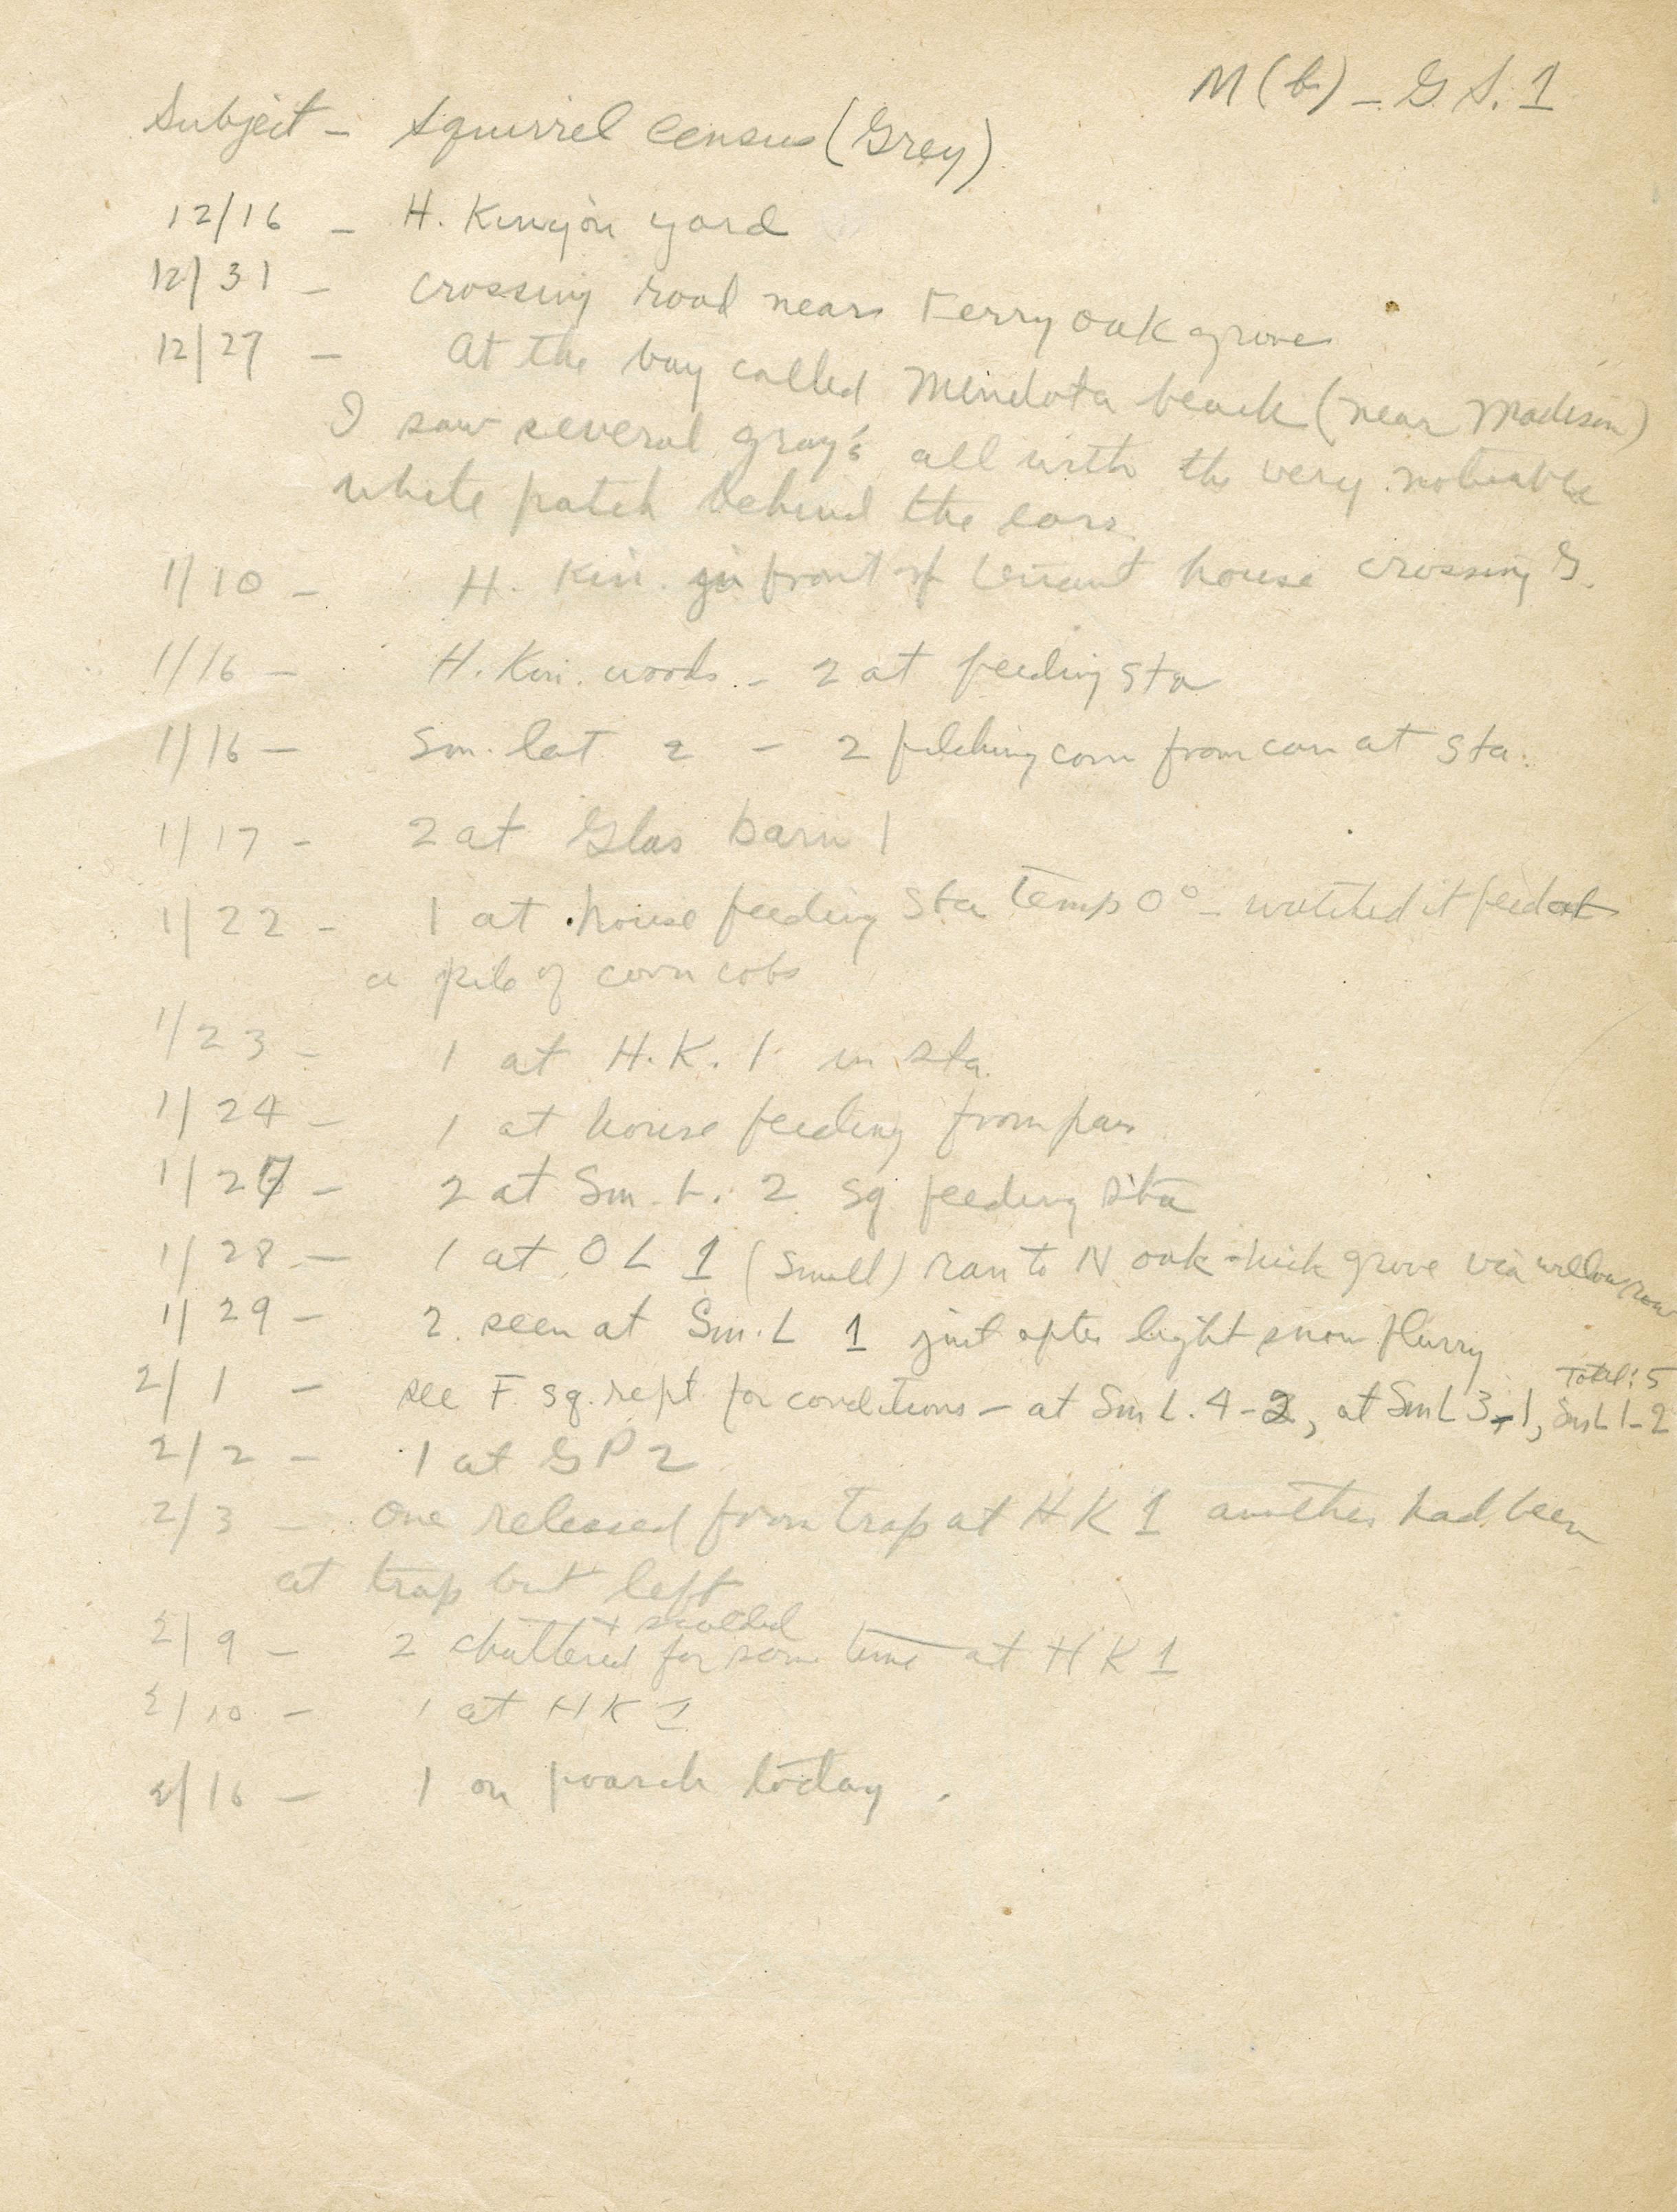 M(b) - G. S. 1
Subject - Squirrel Census (Grey)
12/16 - H. Kinyon yard
12/31 - crossing road near Ferry oak grove
12/27 - At the bay called Mendota beach (near Madison)
I saw several gray's all with the very noticable
white patch behind the ears.
1/10 - H. Kin. in front of tenant house crossing G.
1/16 - H. Kin. woods - 2 at feeding sta
1/16 - Sm. lat 2 - 2 filching corn from can at sta.
1/17 - 2 at Glas barn 1
1/22 - 1 at house feeding sta temp 0° - watched it feed at
a pile of corn cobs
1/23 - 1 at H.K. 1 in sta.
1/24 - 1 at house feeding from pan
1/27 - 2 at Sm. L. 2 sq feeding sta
1/28 - 1 at O L 1 (small) ran to N oak-hick grove via willow row
1/29 - 2 seen at Sm. L 1 just after light snow flurry
Total: 5
2/1 - see F sq. rept. for conditions - at Sm L. 4-2, at Sm L 3-1, Sm L 1-2
2/2 - 1 at G P 2
2/3 - One released from trap at H K 1 another had been
at trap but left
+ scolded
2/9 - 2 chattered for some time at H K 1
2/10 - 1 at H K 1
2/16 - 1 on poarch today.